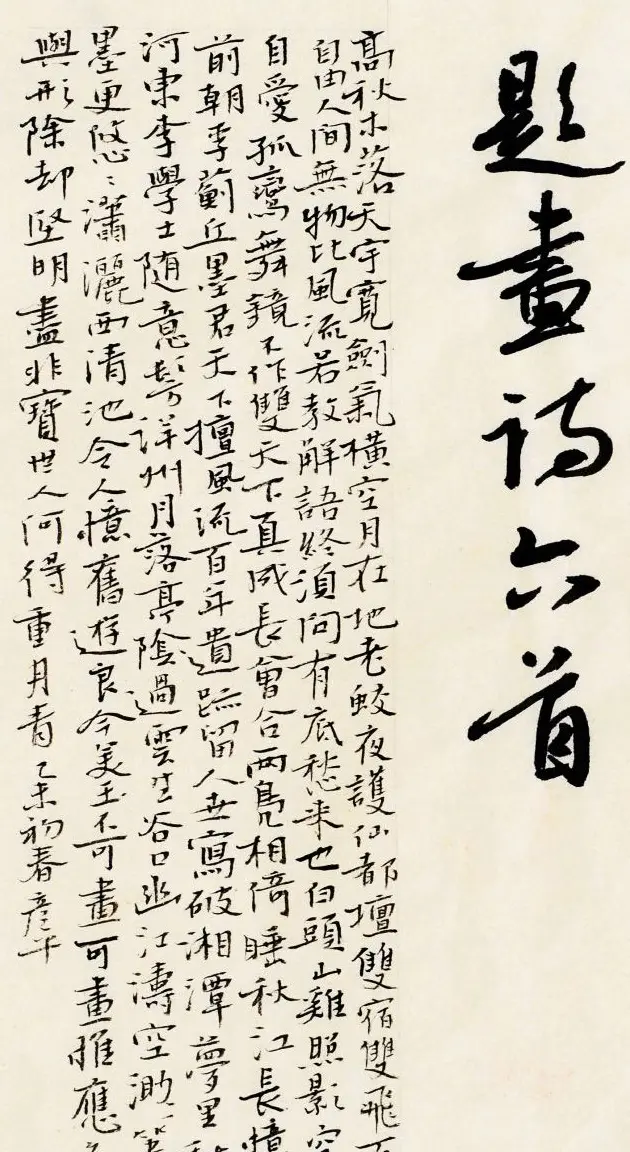 題畫詩六首
高秋木落天宇寬劍氣橫空月在地老蛟夜護仙都壇雙宿雙飛
自由人間無物比風流若教解語終須問有底愁來也白頭山雞照影空
自愛孤鸞舞鏡不作雙天下真成長會合兩鳧相倚睡秋江長憶
前朝李薊丘墨君天下擅風流百年遺跡留人世寫破湘潭夢里
河東李學士隨意髣洋州月落亭陰過雲生谷口幽江濤空渺〻
墨更悠〻瀟灑西清池令人憶舊遊良金美玉不可畫可畫惟應
與形除却堅明盡非寶世人何得重丹青乙未初春彥平